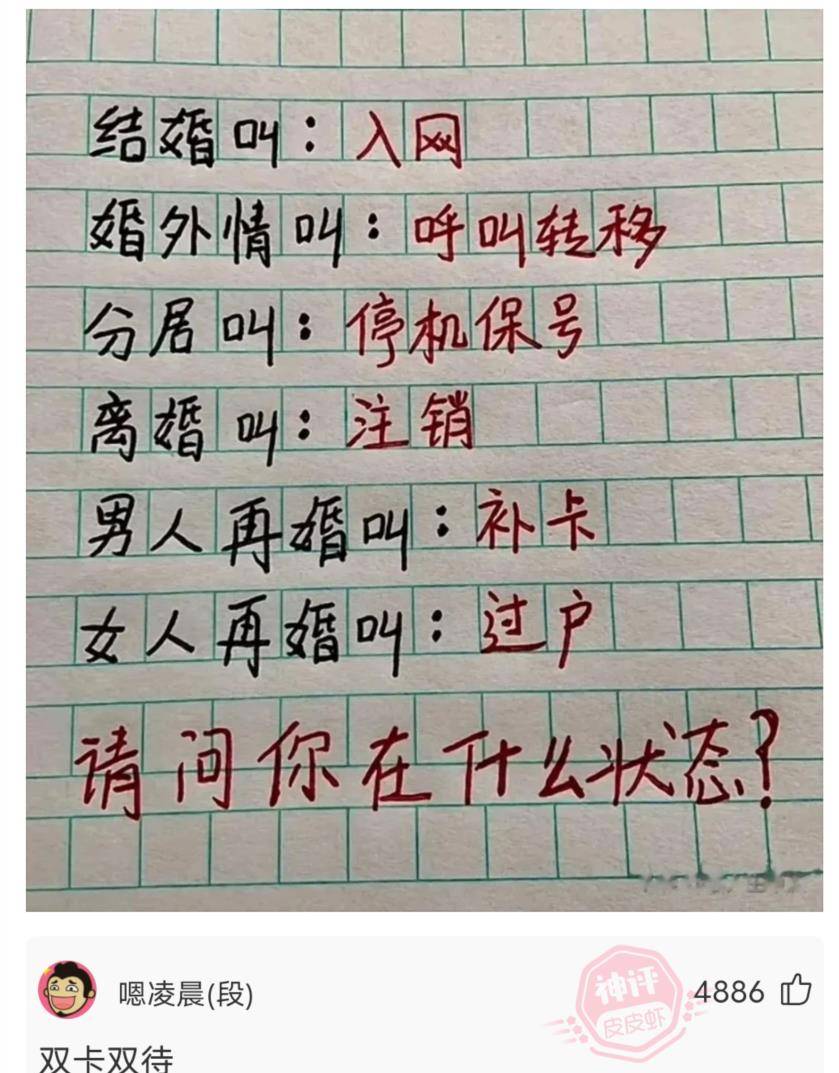 结婚叫：入网
婚外情叫：呼叫转移
分居叫：停机保号
离婚叫：注销
男人再婚叫：补卡
女人再婚叫：过户
请问你在什么状态？
嗯凌晨(段)
神评
皮皮虾
4886
双卡双待